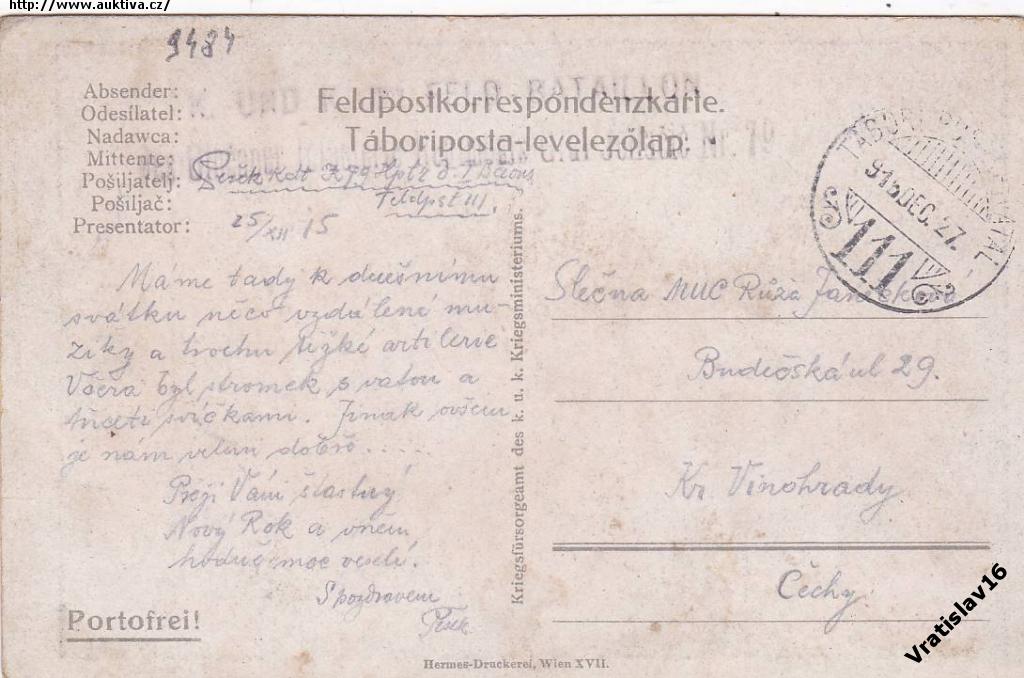 http://www.auktiva.cz/
9484
K. UND K. FELD-BATAILLON
Nr. 79
Feldpostkorrespondenzkarte.
Táboriposta-levelezőlap.
Absender:
Odesílatel:
Nadawca:
Mittente:
Pošiljatelj:
Pošiljač:
Presentator:
Feldpst 111.
25/XII 15
TÁBORI POSTAHIVATAL
915 DEC. 27.
111
Máme tady k dnešnímu
svátku něco vzdálené mu-
ziky a trochu těžké artilerie
Včera byl stromek s vatou a
třiceti svíčkami. Jinak ovšem
je nám velmi dobře.....
Přeji Vám šťastný
Nový Rok a v něm
hodně moc veselí.
S pozdravem
Slečna MUC Růža
Budečská ul 29.
Kr. Vinohrady
Čechy.
Portofrei!
Kriegsfürsorgeamt des k. u. k. Kriegsministeriums.
Hermes-Druckerei, Wien XVII.
Vratislav16